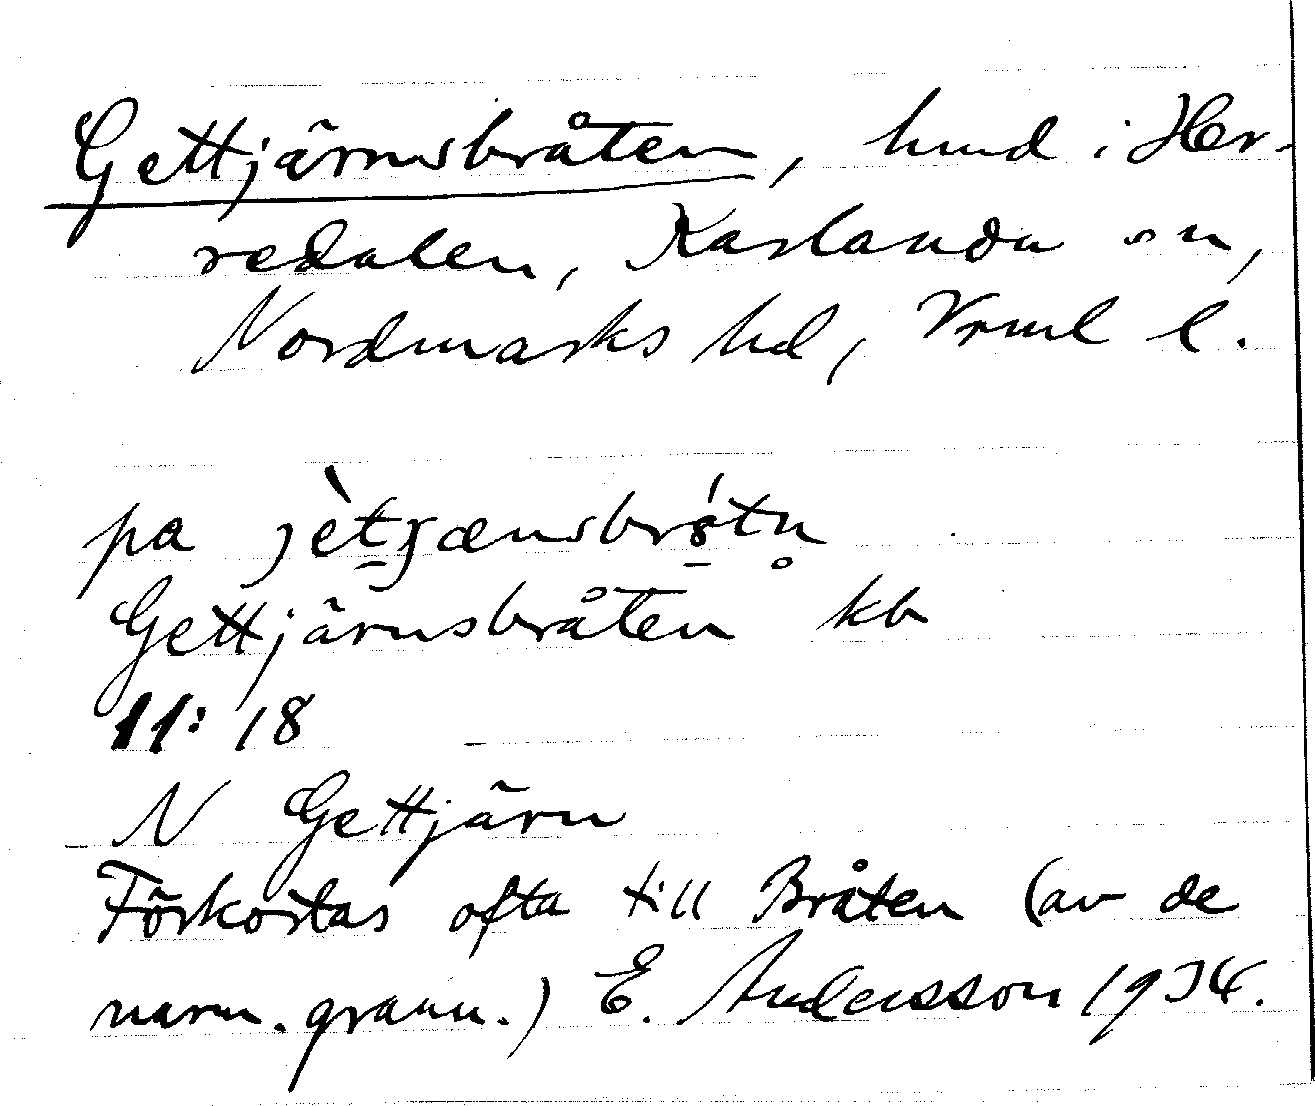 Gettjärnsbråten, hmd i Her-
redalen, Karlanda sn,
Nordmarks hd, Vrml l.
pa jètjænsbrǻtn̥
Gettjärnsbråten kb
11: 18
N Gettjärn
Förkortas ofta till Bråten (av de
närm. grann.) E. Andersson 1934.